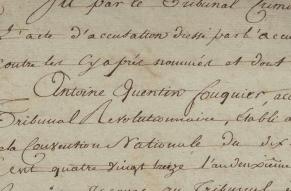 Vu par le Tribunal Crim
L'acte d'accusation dressé par l'accu
contre les cy après nommés et dont
Antoine Quentin fouquier, acc
Tribunal Revolutionnaire, établi a
la Convention Nationale du dix
cent quatre vingt treize l'an deuxième
au Tribunal